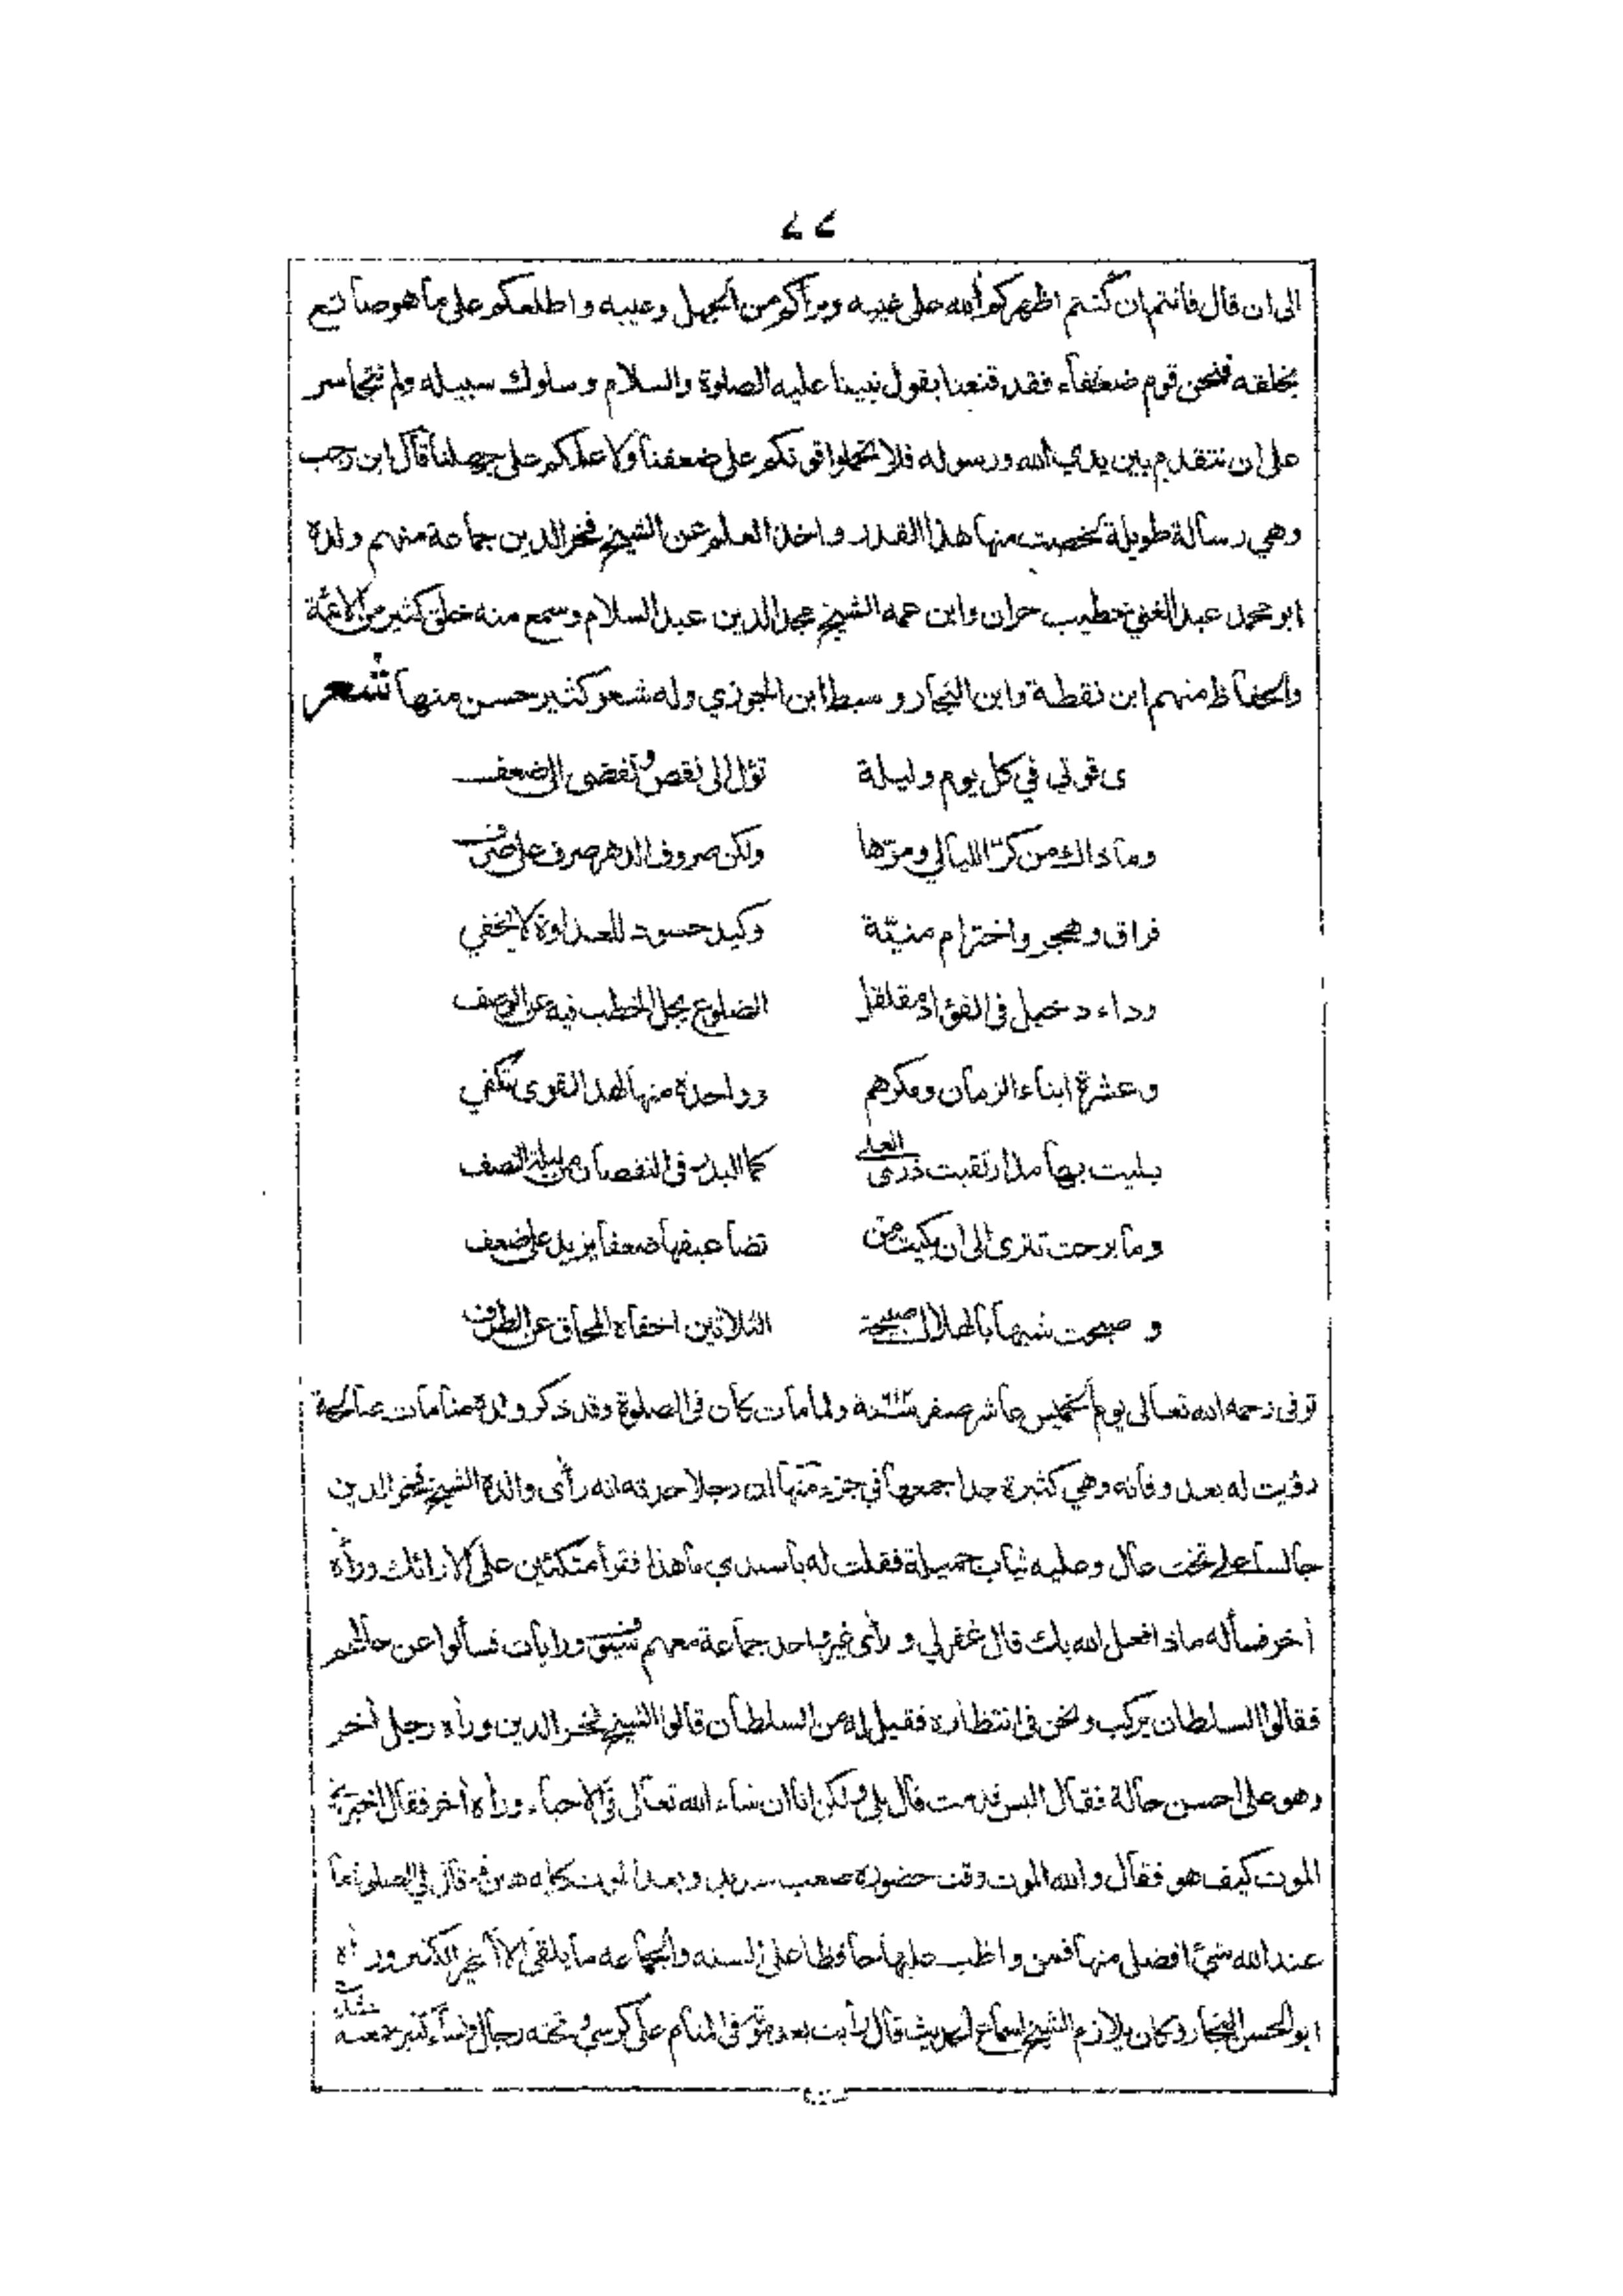 الى ان قال فانتم ان كنتم اظهركم الله على غيبه وبرأكم من الجهل وعيبه واطلعكم على ما هو صانع
بخلقه فنحن قوم ضعفاء فقد قنعنا بقول نبينا عليه الصلوة والسلام وسلوك سبيله ولم نتجاسر
على ان نتقدم بين يدي الله ورسوله فلا تحملوا قوتكم على ضعفنا ولا علمكم على جهلنا قال ابن رجب
وهي رسالة طويلة لخصت منها هذا القدر واخذ العلم عن الشيخ فخر الدين جماعة منهم ولده
ابو محمد عبد الغني خطيب حران وابن عمه الشيخ مجد الدين عبد السلام وسمع منه خلق كثير من الائمة
والحفاظ منهم ابن نقطة وابن النجار وسبط ابن الجوزي وله شعر كثير حسن منها شعر
ى قوتي في كل يوم وليلة تؤل الى نقص وتفضى الى ضعف
وما ذاك من كر الليالي ومرّها ولكن صروف الدهر صرف على صرف
فراق وهجر واخترام منيّة وكيد حسود للعداوة لا يخفي
وداء دخيل في الفؤاد مقلقل الضلوع يجل الخطب فيه عن الوصف
وعشرة ابناء الزمان ومكرهم وواحدة منها لهد القوى تكفي
بليت بها مذ ارتقيت ذرى العلى كما البدر في النقصان من ليلة النصف
وما برحت تترى الى ان بكيت من تضاعيفها ضعفا يزيد على ضعف
و صبحت شبها بالهلال صبيحة الثلاثين اخفاه المحاق عن الطرف
توفى رحمه الله تعالى يوم الخميس عاشر صفر سنة ولما مات كان في الصلوة وقد ذكر ولده منامات صالحة
رؤيت له بعد وفاته وهي كثيرة جدا جمعها في جزء منها ان رجلا حدثه انه رأى والده الشيخ فخر الدين
جالسا على تخت عال وعليه ثياب جميلة فقلت له يا سيدي ما هذا فقرأ متكئين على الارائك ورأه
أخر فسأله ماذا فعل الله بك قال غفر لي و رأى غير واحد جماعة معهم ورايات فسألوا عن حالهم
فقالوا السلطان يركب ونحن في انتظاره فقيل له من السلطان قالوا الشيخ فخر الدين ورأه رجل أخر
وهو على احسن حالة فقال اليس قد مت قال بلى ولكن انا ان شاء الله تعالى في الاحياء ورأه أخر فقال
الموت كيف هو فقال والله الموت وقت حضوره صعب شديد وبعد الموت كله هين قال لي الصلوة ما
عند الله شيئ افضل منها فمن واظب عليها حافظا على السنه والجماعه ما يلقى الا الخير الكثير ورأه
ابو الحسن النجار وكان يلازم الشيخ لسماع الحديث قال رأيت بعد موته في المنام على كرسي وتحته رجال ونساء كثير